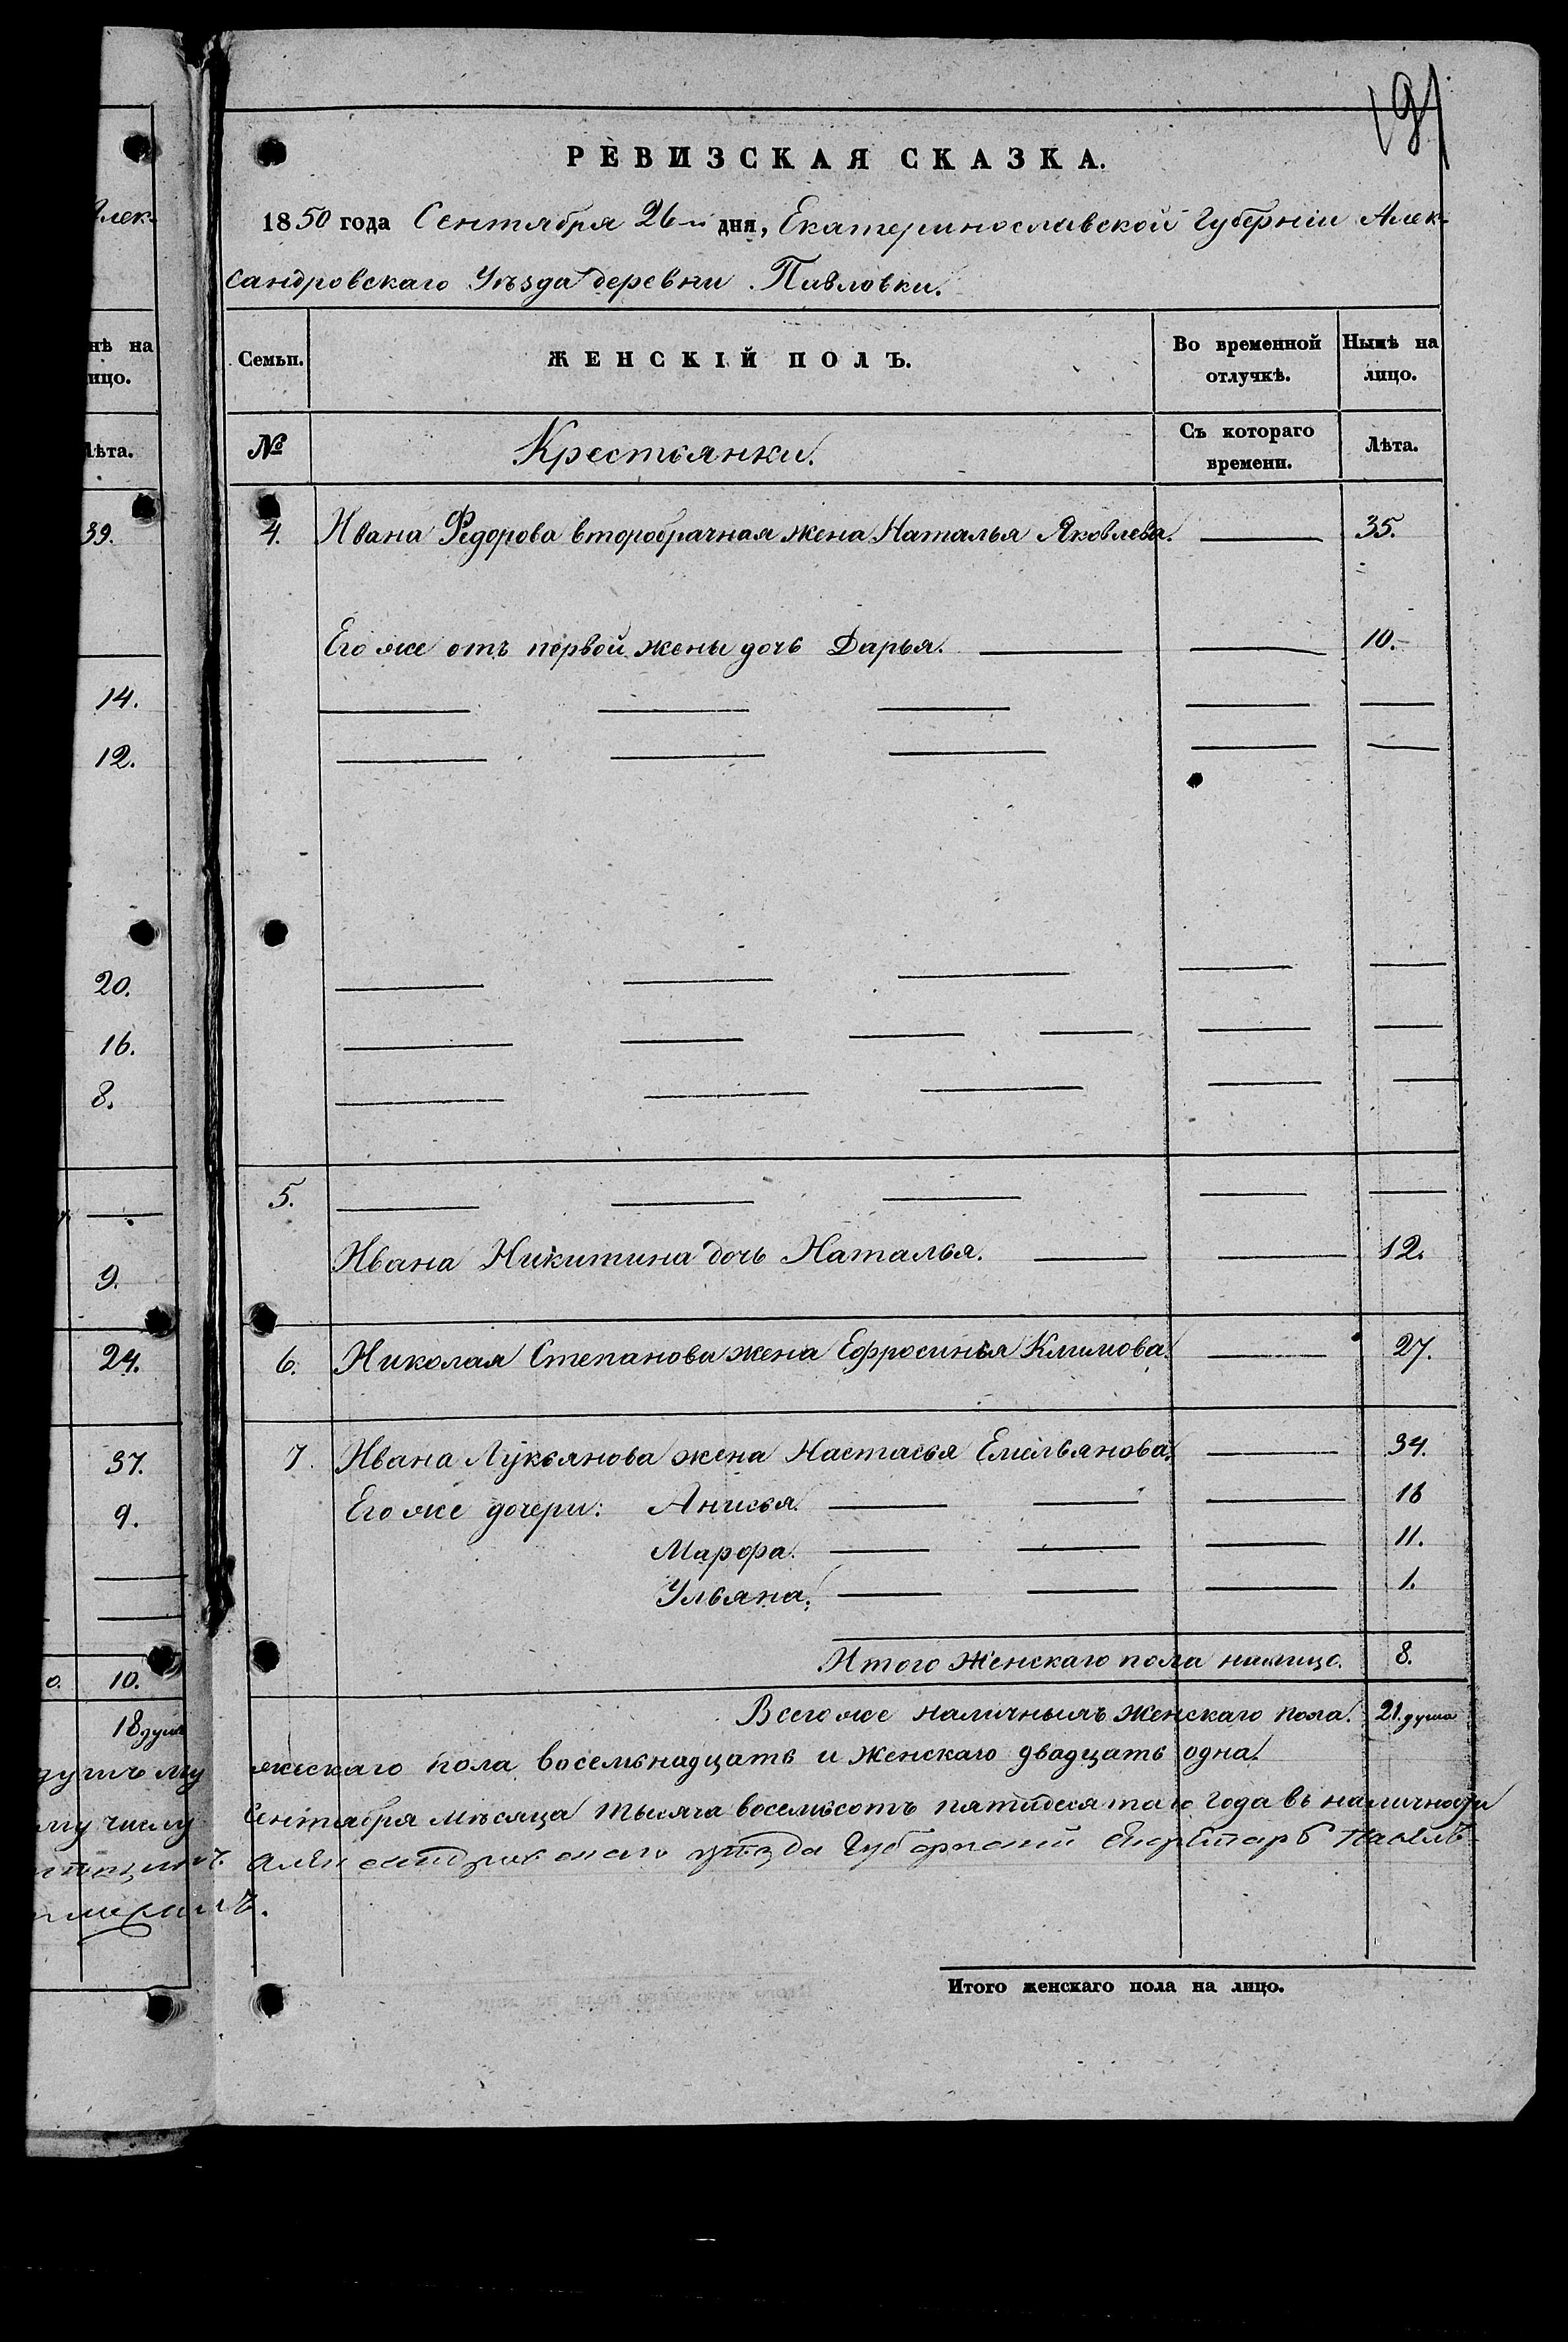 191
РЕВИЗСКАЯ СКАЗКА.
1850 года Сентября 26-й дня, Екатеринославской Губерніи Алек-
сандровскаго Уѣзда деревни Павловки.
Семьи. ЖЕНСКІЙ ПОЛЪ. Во временной отлучкѣ. Нынѣ на лицо.
№ Крестьянки. Съ котораго времени. Лѣта.
4. Ивана Федорова второбрачная жена Наталья Яковлева. — 35.
Его же отъ первой жены дочь Дарья. — — 10.
— — — — —
— — — — —
— — — — —
— — — — — —
— — — — —
5. — — — — —
Ивана Никитина дочь Наталья. — — 12.
6. Николая Степанова жена Ефросинья Климова. — 27.
7. Ивана Лукьянова жена Настасья Емельянова. — 34.
Его же дочери: Анисья. — — — 16
Марфа. — — — 11.
Ульяна. — — — 1.
Итого женскаго пола налицо. 8.
Всего же наличныхъ женскаго пола. 21 душа
жескаго пола восемьнадцать и женскаго двадцать одна.
Сентября мѣсяца тысяча восемьсотъ пятидесятаго года въ наличности
Александровскаго уѣзда Губернский Секретарь
Итого женскаго пола на лицо.
Алек-
нѣ на
ицо.
Лѣта.
39.
14.
12.
20.
16.
8.
—
9.
24.
37.
9.
—
—
о. 10.
18 душ
му числу